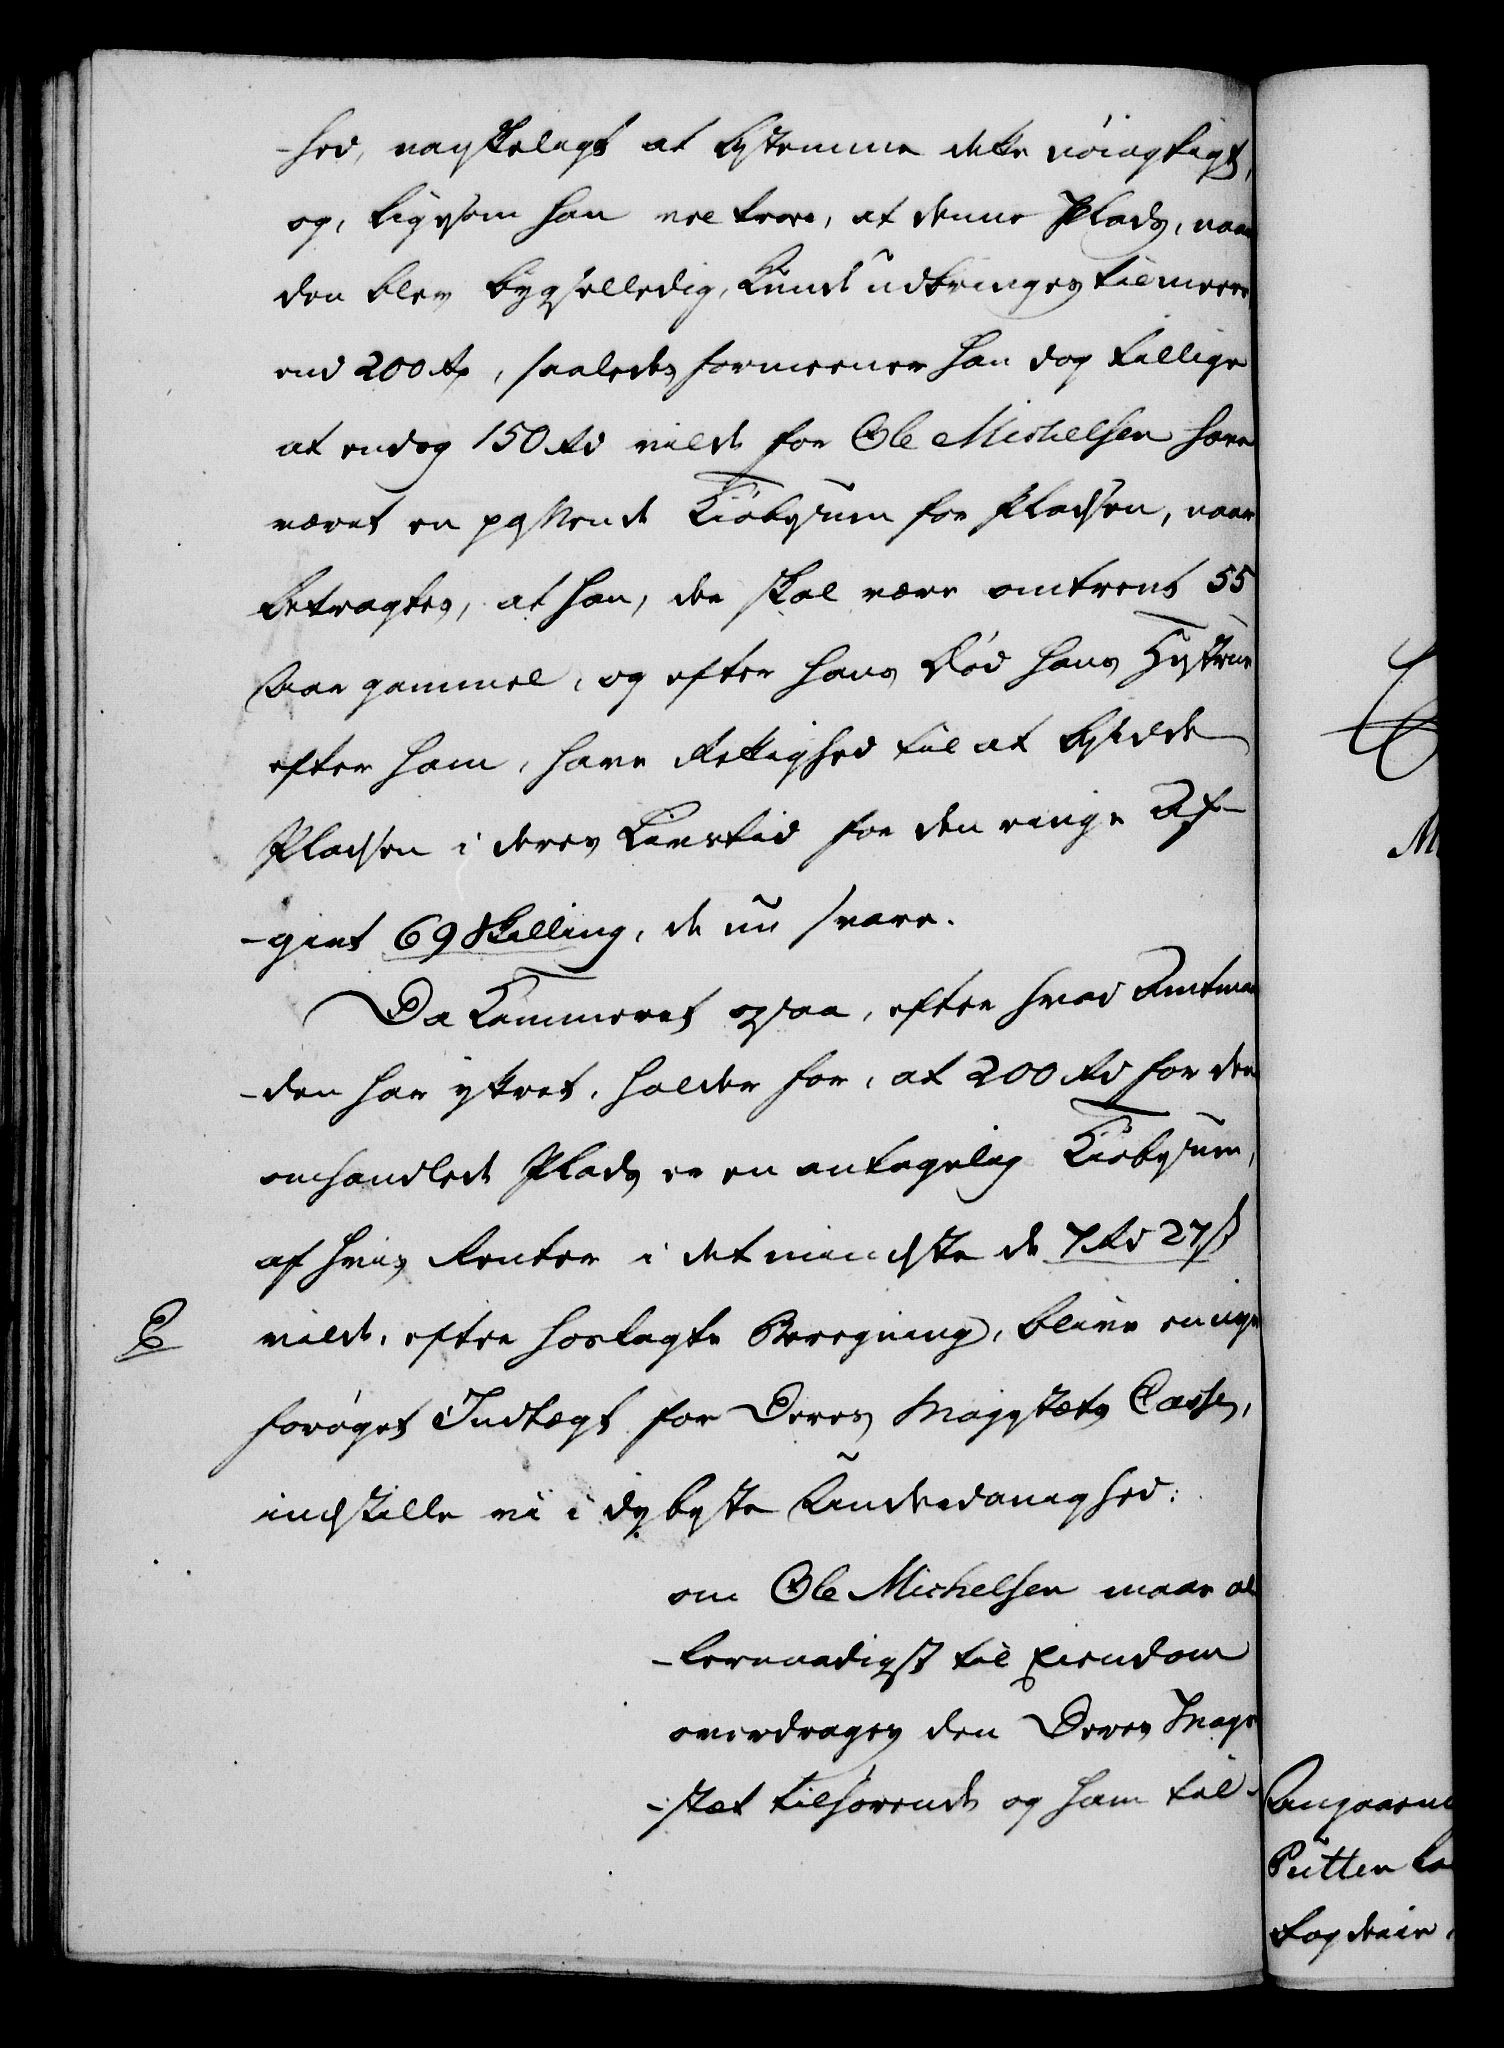 -hed, vanskeligt at bestemme dette nöiagtigt,
og, ligesom han vel troer, at denne Plads, naar
den blev bygselledig, kunde udbringes til meere
end 200 Rd, saaledes formeener han dog tillige
at endog 150 Rd vilde for Ole Michelsen have
været en passende Kiöbesum for Pladsen, naar
betragtes, at han, der skal være omtrent 55
Aar gammel, og efter hans Död hans Hustrue
efter ham, have Rettighed til at besidde
Pladsen i deres Livstid for den ringe Af-
-givt 69 Skilling, de nu svare.
Da Kammeret ogsaa, efter hvad Amtman
-den har yttret, holder for, at 200 Rd for den
omhandlede Plads er en antagelig Kiöbesum,
af hvis Renter i det mindste de 7 Rd 27 s
vilde, efter hoslagte Beregning, blive en nye
forøget Indtægt for Deres Majestæts Casse,
indstille vi i dybeste Underdanighed:
om Ole Michelsen maae al
-lernaadigst til Eiendom
overdrages den Deres Maje
-stæt tilhörende og ham til-
Angaaende
Pütten